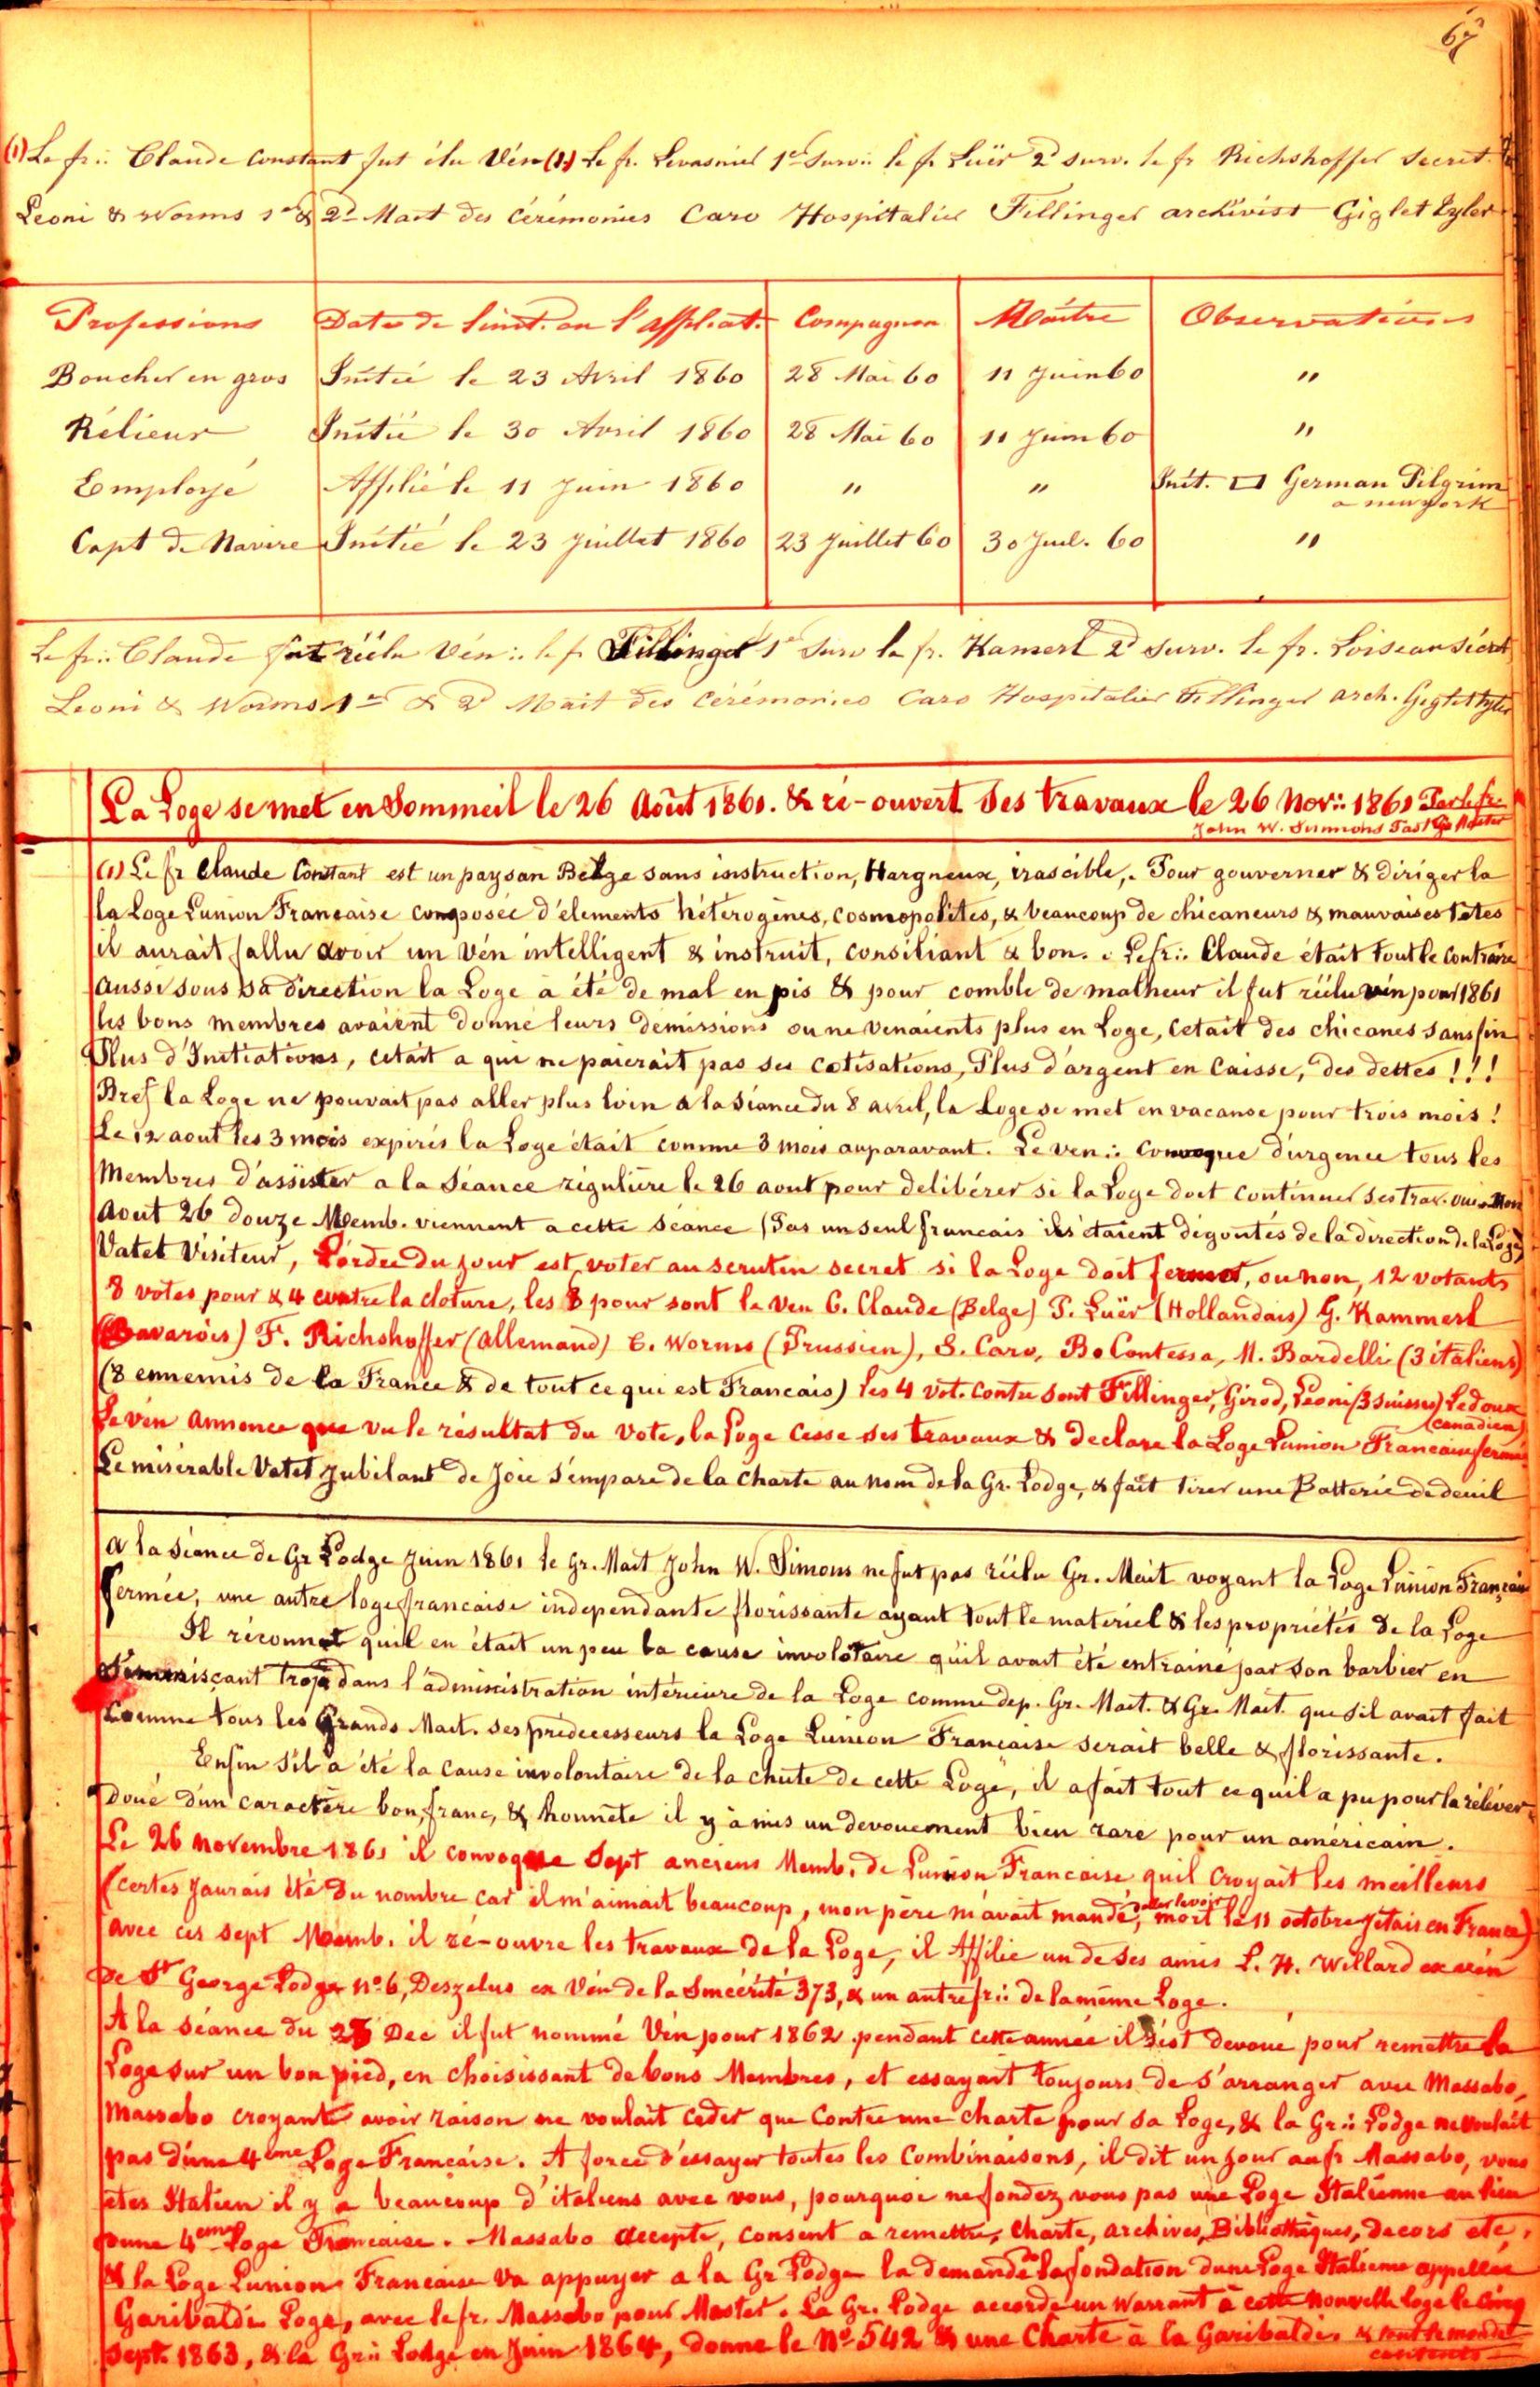 67
(1) Le fr∴ Claude Constant fut élu Vén (1.) Le fr. Levasnier 1er Surv∴ le fr Luër 2d surv. le fr Richshoffer secret.
Leoni & Worms 1er & 2d Mait des Cérémonies Caro Hospitalier Fillinger archivist Giglet Tyler
Professions Date de l'init. ou l'affiliat. Compagnon Maître Observations
Boucher en gros Initié le 23 Avril 1860 28 Mai 60 11 Juin 60 "
Rélieur Initié le 30 Avril 1860 28 Mai 60 11 Juin 60 "
Employé Affilié le 11 Juin 1860 " " Init. ▭ German Pilgrim
a new york
Capt de Navire Initié le 23 Juillet 1860 23 Juillet 60 30 Juil. 60 "
Le fr∴ Claude fut réélu Vén∴ le fr Fillinger 1er Surv le fr. Kamerl 2d surv. le fr. Loiseau Sécrt
Leoni & Worms 1er & 2d Mait des Cérémonies Caro Hospitalier Fillinger arch. Giglet Tyler
La Loge se met en Sommeil le 26 Août 1861. & ré-ouvert ses travaux le 26 Nov∴ 1861 Par le fr∴
John W. Simmons Past Gr Master
(1) Le fr Claude Constant est un paysan Belge sans instruction, Hargneux, irascible,. Pour gouverner & diriger la
la Loge Lunion Francaise composée d'élements hétérogènes, cosmopolites, & beaucoup de chicaneurs & mauvaises têtes
il aurait fallu avoir un Vén intelligent & instruit, consiliant & bon. Le fr∴ Claude était tout le contraire
aussi sous sa direction la Loge a été de mal en pis & pour comble de malheur il fut réélu vén pour 1861
les bons membres avaient donné leurs démissions ou ne venaients plus en Loge, cetait des chicanes sans fin
Plus d'Initiations, cétait a qui ne paierait pas ses cotisations, Plus d'argent en Caisse, des dettes !!!
Bref la Loge ne pouvait pas aller plus loin a la séance du 8 avril, la Loge se met en vacanse pour trois mois !
Le 12 aout les 3 mois expirés la Loge était comme 3 mois auparavant. Le ven∴ convoque d'urgence tous les
Membres d'assister a la Séance régulière le 26 aout pour delibérer si la Loge doit continuer ses trav. oui ou Non
Aout 26 douze Memb. viennent a cette séance (Pas un seul francais ils étaient dégoutés de la direction de la Loge)
Vatet Visiteur, L'ordre du jour est, voter au scrutin secret si la Loge doit fermer, ou non, 12 votants
8 votes pour & 4 contre la cloture, les 8 pour sont le Ven C. Claude (Belge) P. Luër (Hollandais) G. Kammerl
(Bavarois) F. Richshoffer (allemand) C. Worms (Prussien), S. Caro, B. Contessa, M. Bardelli (3 italiens)
(8 ennemis de la France & de tout ce qui est Francais) les 4 vot. contre sont Fillinger, Girod, Leoni (3 suisses) Ledoux
(canadien)
Le vén annonce que vu le résultat du vote, la Loge cesse ses travaux & declare la Loge Lunion Francaise fermé
Le misérable Vatet Jubilant de Joie s'empare de la charte au nom de la Gr. Lodge, & fait tirer une Batterie de deuil
A la séance de Gr Lodge Juin 1861 le Gr. Mait John W. Simons ne fut pas réélu Gr. Mait voyant la Loge Lunion Française
fermée, une autre loge francaise independante florissante ayant tout le matériel & les propriétés de la Loge
Il réconnut quil en était un peu la cause involotaire qu'il avait été entrainé par son barbier en
s'immisçant trop dans l'administration intérieure de la Loge comme dep. Gr. Mait. & Gr. Mait. que sil avait fait
Comme tous les Grands Mait. ses prédecesseurs la Loge Lunion Francaise serait belle & florissante.
Enfin s'il a été la cause involontaire de la chute de cette Loge, il a fait tout ce quil a pu pour la réléver
doué d'un caractère bon, franc, & honnête il y à mis un devouement bien rare pour un américain.
Le 26 novembre 1861 il convoque Sept anciens Memb. de Lunion Francaise quil croyait les meilleurs
(certes jaurais été du nombre car il m'aimait beaucoup, mon père m'avait mandé, aller le voir mort le 11 octobre j'étais en France)
avec ces sept Memb. il ré-ouvre les travaux de la Loge, il Affilie un de ses amis L. H. Willard ex vén
de St George Lodge No 6, Deszelus ex Vén de la Sincérité 373, & un autre fr∴ de la même Loge.
A la séance du 23 Dec il fut nommé Vén pour 1862 pendant cette année il s'est devoué pour remettre la
Loge sur un bon pied, en choisissant de bons Membres, et essayant toujours de s'arranger avec Massabo,
Massabo croyant avoir raison ne voulait ceder que contre une charte pour sa Loge, & la Gr∴ Lodge ne voulait
pas d'une 4eme Loge Francaise. A force d'essayer toutes les combinaisons, il dit un jour au fr Massabo, vous
etes Italien il y a beaucoup d'italiens avec vous, pourquoi ne fondez vous pas une Loge Italienne au lieu
d'une 4eme Loge Francaise. Massabo accepte, consent a remettre, Charte, archives, Bibliothèques, decors etc,
& la Loge Lunion Francaise va appuyer a la Gr Lodge la demande de la fondation d'une Loge Italienne appellée
Garibaldi Loge, avec le fr. Massabo pour Master. La Gr. Lodge accorde un Warrant à cette nouvelle loge le cinq
Sept. 1863, & la Gr∴ Lodge en Juin 1864, donne le No 542 & une Charte à la Garibaldi. & tout le monde
contents